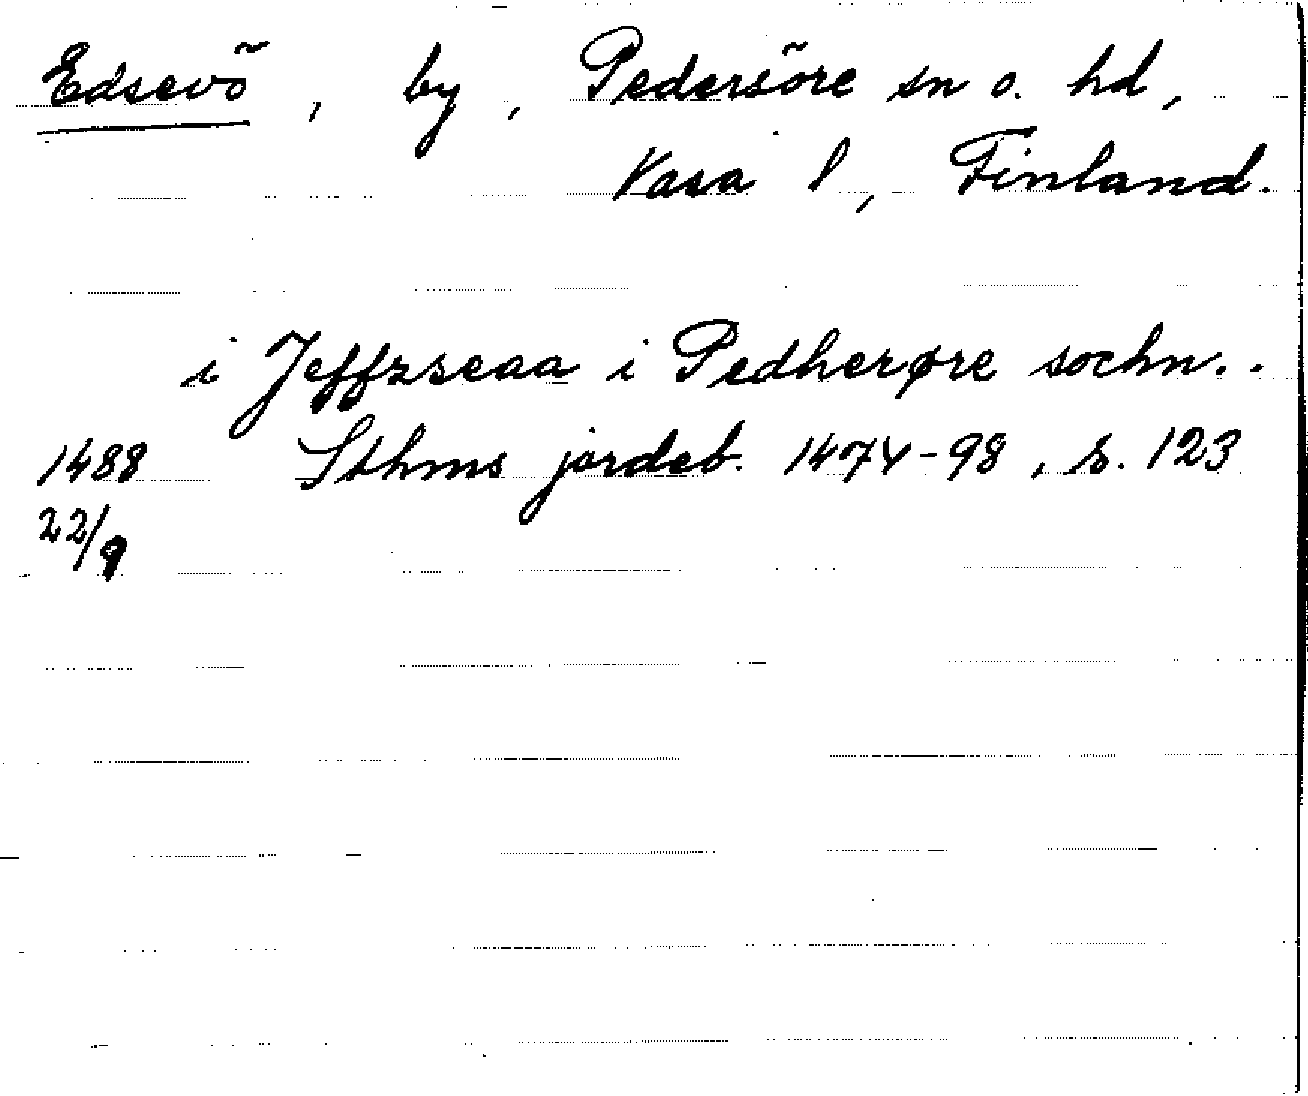 Edsevö, by, Pedersöre sn o. hd,
Vasa l, Finland.
i Jeffzseaa i Pedherøre sochn..
1488 Sthms jordeb. 1474-98, s. 123
22/9